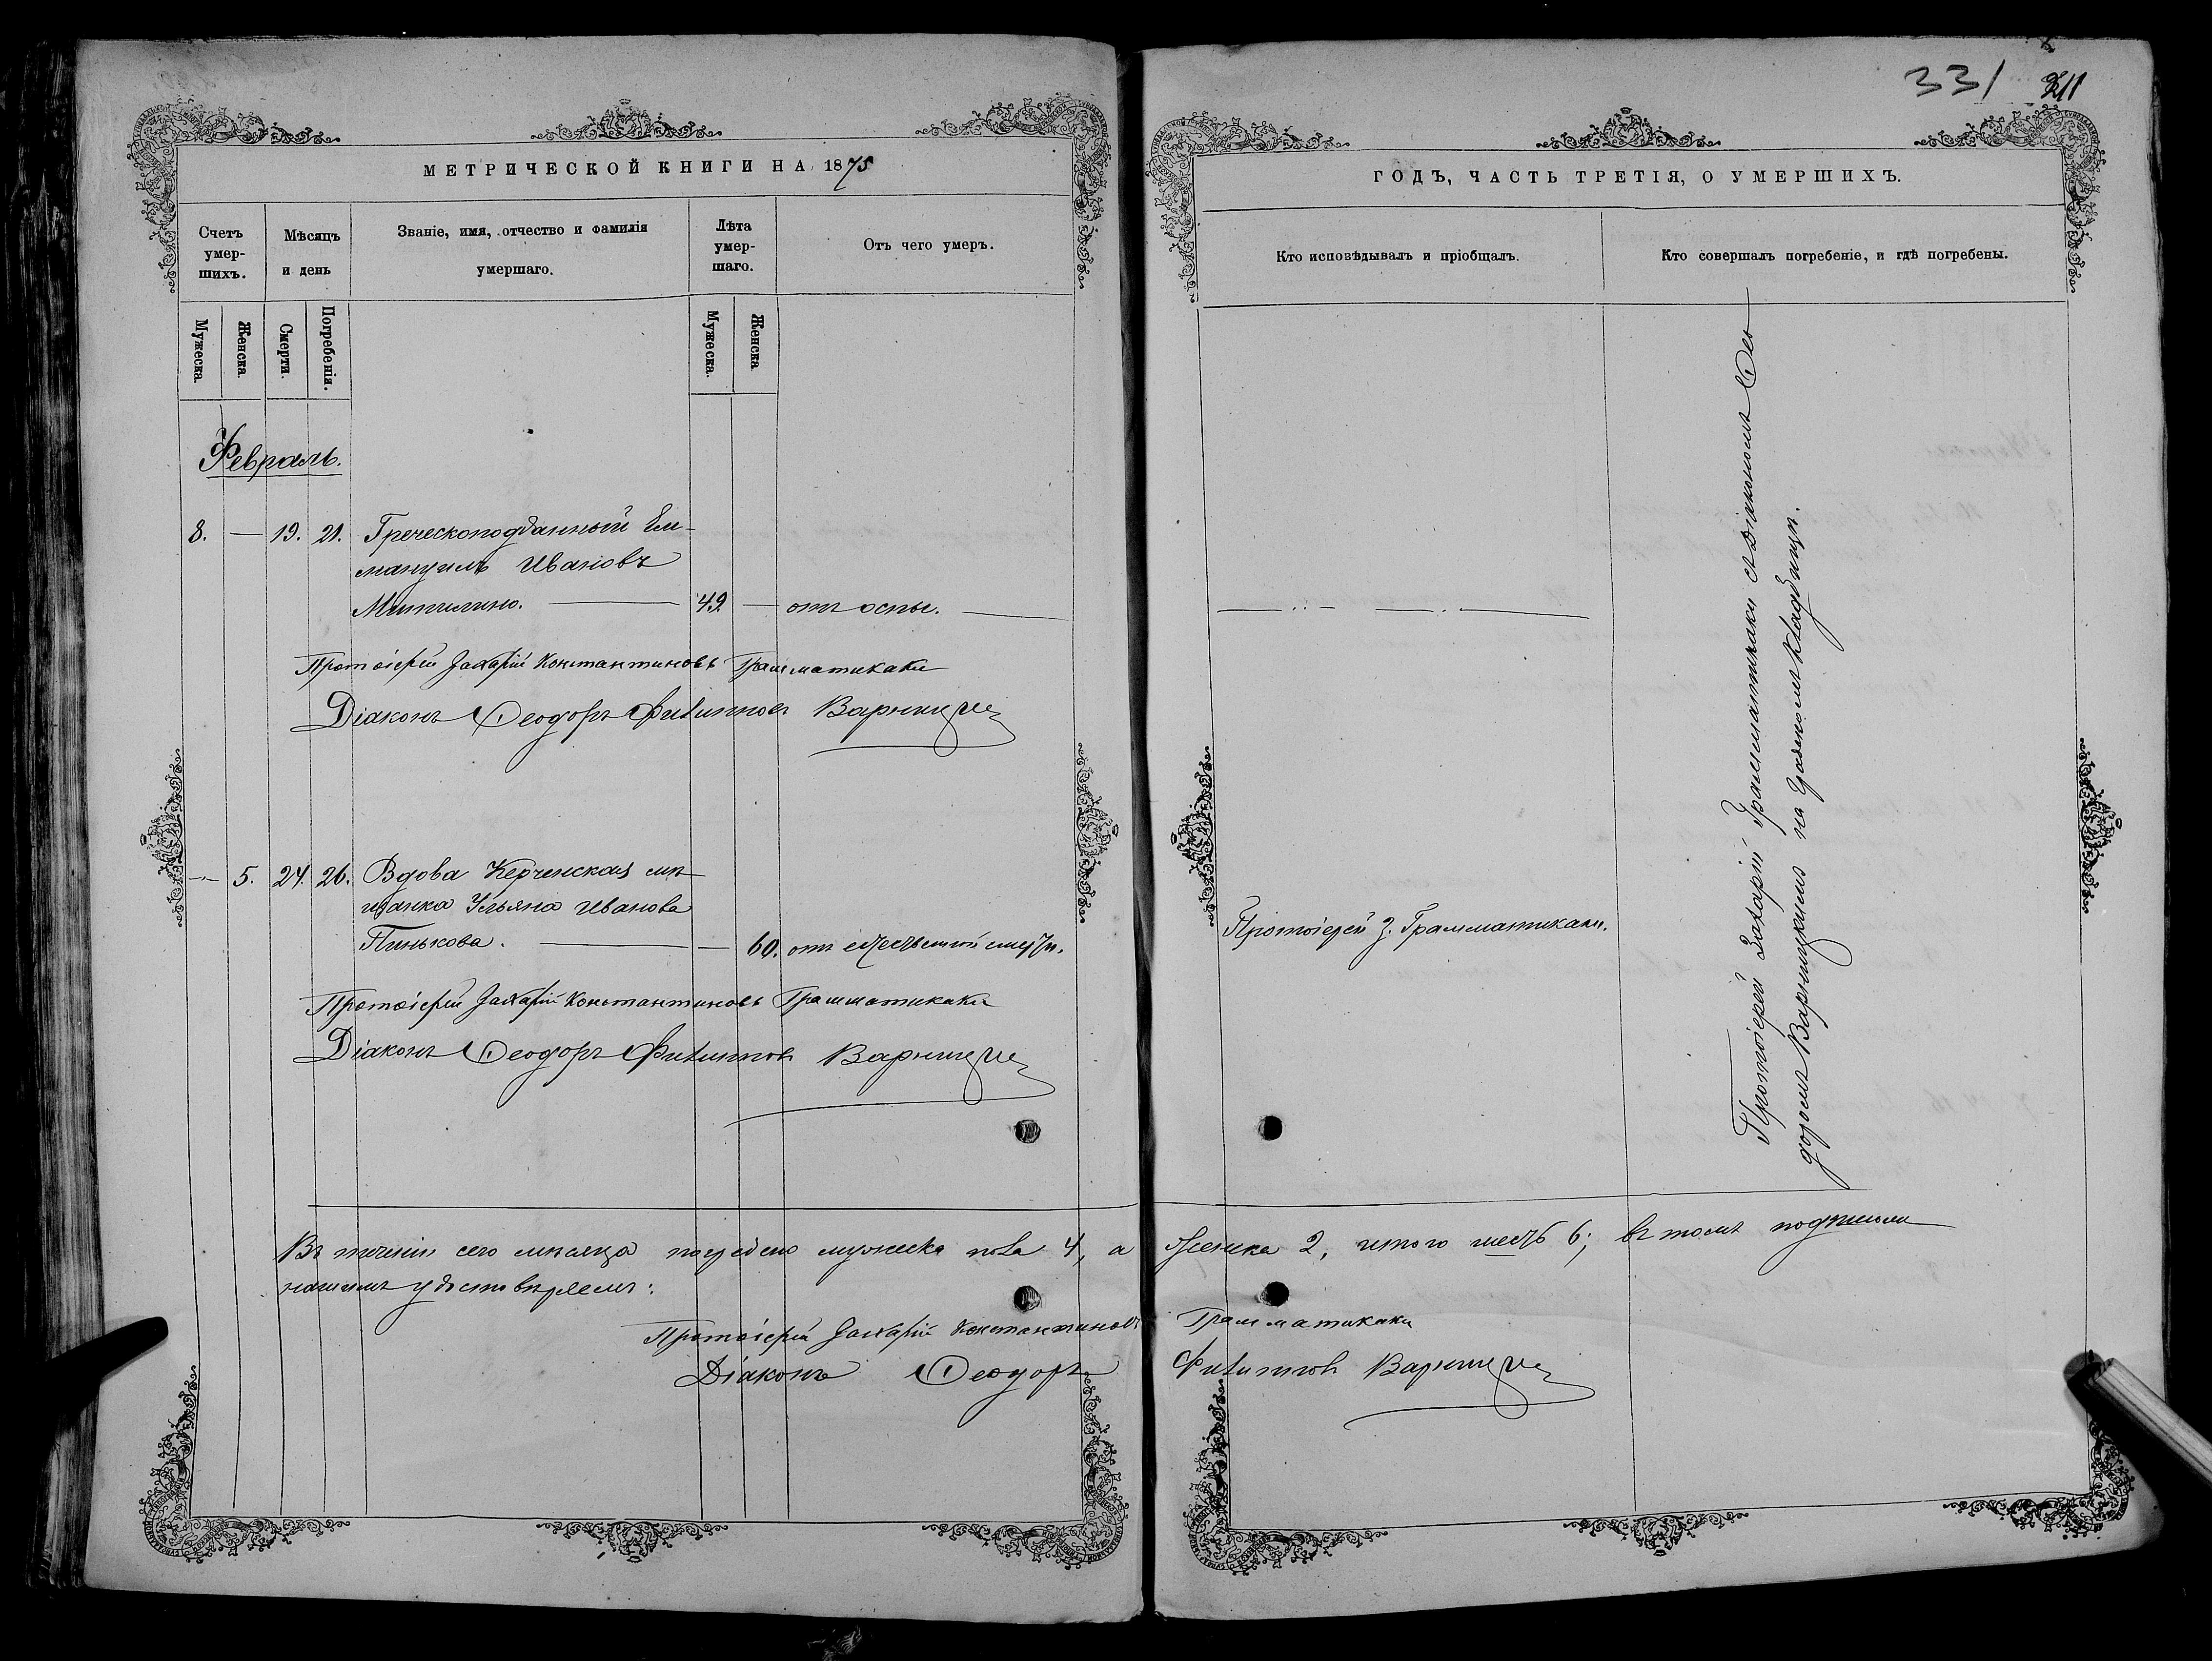 МЕТРИЧЕСКОЙ КНИГИ НА 1875
Счетъ умершихъ.
Мѣсяцъ и день
Званіе, имя, отчество и фамилія умершаго.
Лѣта умершаго.
Отъ чего умеръ.
Мужеска.
Женска.
Смерти.
Погребенія.
Мужеска.
Женска
Февраль.
8. — 19. 21. Греческоподданный Ем-
мануилъ Ивановъ
Митилино. — 49 — отъ оспы. —
Протоіерей Захарій Константиновъ Грамматикаки
Діаконъ Ѳеодоръ Филипповъ Варницкій
— 5. 24. 26. Вдова Керченская мѣ-
щанка Ульяна Иванова
Пинькова. — — 60. отъ естественной смерти.
Протоіерей Захарій Константиновъ Грамматикаки
Діаконъ Ѳеодоръ Филипповъ Варницкій
331 211
ГОДЪ, ЧАСТЬ ТРЕТІЯ, О УМЕРШИХЪ.
Кто исповѣдывалъ и пріобщалъ.
Кто совершалъ погребеніе, и гдѣ погребены.
Протоіерей З. Грамматикаки.
Протоіерей Захарій Грамматикаки съ Діакономъ Ѳео
доромъ Варницкимъ на Городскомъ кладбищѣ.
Въ теченіи сего мѣсяца погребено мужеска пола 4, а женска 2, итого шесть 6; въ томъ подписомъ
нашимъ удостовѣряемъ:
Протоіерей Захарій Константиновъ Грамматикаки
Діаконъ Ѳеодоръ Филипповъ Варницкій